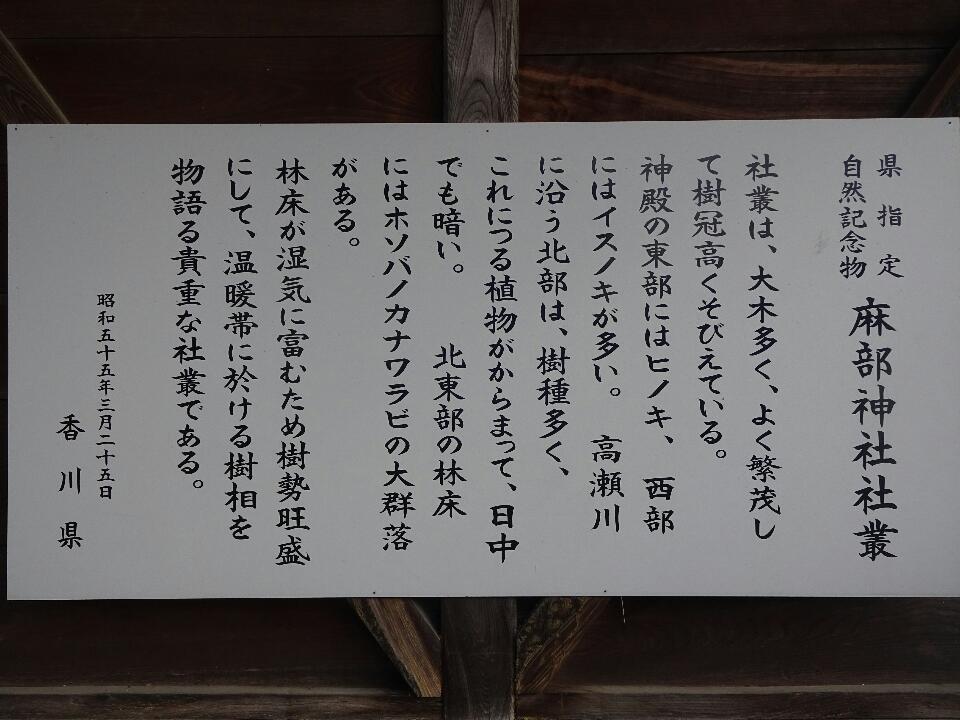 県指定
自然記念物
麻部神社社叢
社叢は、大木多く、よく繁茂し
て樹冠高くそびえている。
神殿の東部にはヒノキ、西部
にはイスノキが多い。 高瀬川
に沿う北部は、樹種多く、
これにつる植物がからまって、日中
でも暗い。 北東部の林床
にはホソバノカナワラビの大群落
がある。
林床が湿気に富むため樹勢旺盛
にして、温暖帯に於ける樹相を
物語る貴重な社叢である。
昭和五十五年三月二十五日
香川県